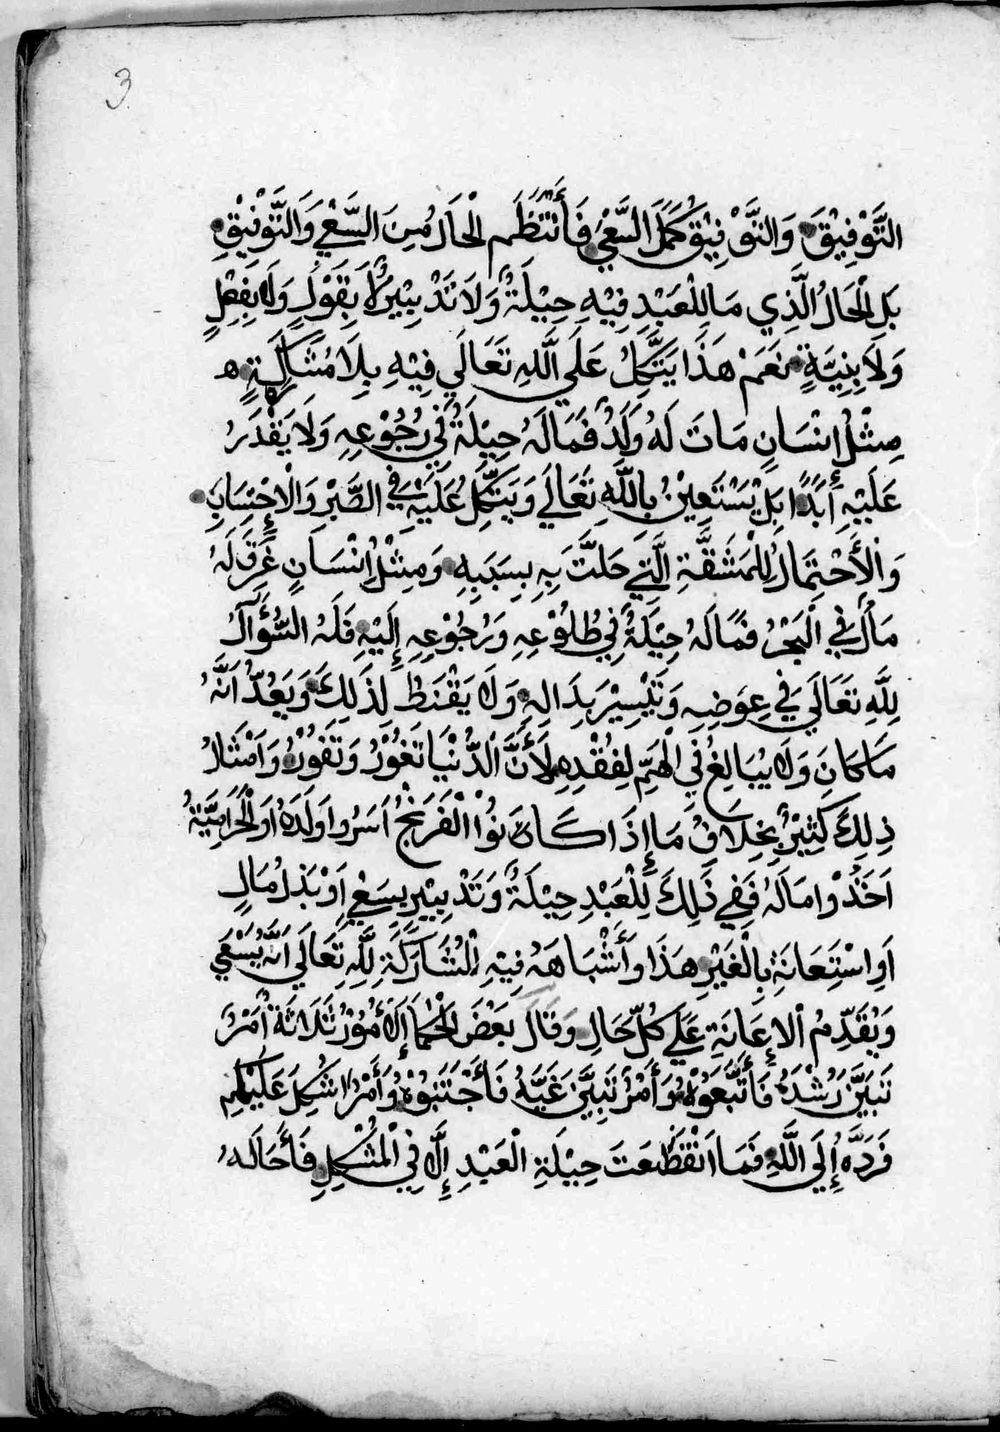 3
التَّوْفِيْقَ وَالتَّوْفِيْقُ كَمَّلَ السَّعْيُ فَأَنْتَظَمَ الْحَالُ مِنَ السَّعْيِ وَالتَّوْفِيْقِ
بَلِ الْحَالُ الَّذِي مَا لِلْعَبْدِ فِيْهِ حِيْلَةٌ وَلَا تَدْبِيْرٌ لَا بِقَوْلٍ وَلَا بِفِعْلٍ
وَلَا بِنِيَّةٍ نَعَمْ هَذَا يَتَّكِلُ عَلَى اللَّهِ تَعَالَي فِيْهِ بِلَا مُشَاكَلَةٍ ه
مِثْلُ اِنْسَانٍ مَاتَ لَهُ وَلَدٌ فَمَا لَهُ حِيْلَةٌ فِي رُجُوْعِهِ وَلَا يَقْدَرُ
عَلَيْهِ أَبَدًا بَلْ يَسْتَعِيْنُ بِاللَّهِ تَعَالَي وَيَتَّكِلُ عَلَيْهِ فِي الصَّبْرِ وَالْإِحْتِسَابِ
وَالْأَحْتِمَالُ لِلْمَشَقَّةِ الَّتِي حَلَّتْ بِهِ بِسَبَبِهِ وَمِثْلُ اِنْسَانٍ غَرِقَ لَهُ
مَالٌ فِي الْبَحْرُ فَمَا لَهُ حِيْلَةٌ فِي طُلُوْعِهِ وَرُجُوْعِهِ إِلَيْهِ فَلَهُ السُّؤَآلُ
لِلَّهِ تَعَالَي فِي عِوَضِهِ وَتَيْسِيْرِ بَدَالِهِ وَلَا يَقْنَطُ لِذَلِكَ وَيَعُدُّ اَنَّهُ
مَا كَانَ وَلَا يُبَالِغُ فِي الْهَمِّ لِفُقْدِهِ لَأَنَّ الدُّنْيَا تَغُوْرُ وَتَفُوْرُ وَاَمْثَالُ
ذِلِكَ كَثِيْرٌ بِخِلَافِ مَا إِذَا كَانُوْا الْفَرَنْجُ اَسَرُوا وَلَدَهُ اَو الْحَرَامِيَّةُ
اَخَذُوا مَالَهُ فَفِي ذَلِكَ لِلْعَبْدِ حِيْلَةٌ وَتَدْبِيْرِ بِسَعْيٍ اَوْ بَذْلُ مَالٍ
اَوِ اسْتَعَانَةِ بِالْغَيْرِ هَذَا وَأَشْبَاهَهُ فِيْهِ الْمُشَارَكَةُ لِلَّهِ تَعَالَي اَنَّهُ يَسْعَي
وَيُقَدِّمُ الْاِعَانَةِ عَلَي كُلِّ حَالٍ وَقَالَ بَعْضُ الْحُكَمَا اَلْأُمُوْرُ ثَلَاثَةٌ أَمْرٌ
تَبَيَّنَ رُشْدَهُ فَأَتَّبَعُوْهُ وَأَمْرٌ تَبَيَّنَ غَيَّهُ فَأَجْتَنَبُوْهُ وَأَمْرٌ اَشْكِلَ عَلَيْكُمِ
فَرَدَّهُ إِلَي اللَّهِ فَمَا اَنْقَطَعَتَ حِيْلَةِ الْعَبْدِ إِلَّا فِي الْمُشْكِلِ فَأَحَالَهُ